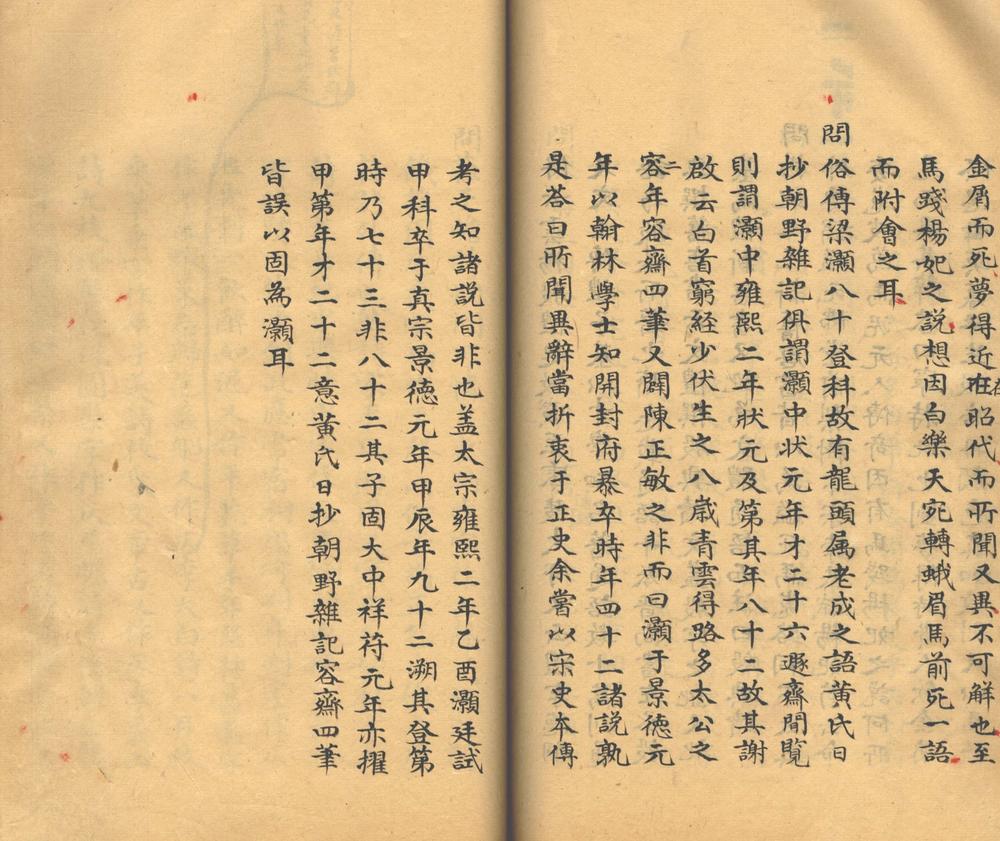 金屑而死夢得近在昭代而所聞又異不可解也至
馬踐楊妃之說想因白樂天宛轉蛾眉馬前死一語
而附會之耳
問俗傳梁灝八十登科故有龍頭属老成之語黃氏日
抄朝野雜記俱謂灝中状元年才二十六遯齋閒覧
則謂灝中雍熙二年状元及第其年八十二故其謝
啟云白首窮経少伏生之八歲青雲得路多太公之
二
容年容齋四筆又闢陳正敏之非而曰灝于景德元
年以翰林學士知開封府暴卒時年四十二諸説孰
是荅曰所聞異辭當折衷于正史余嘗以宋史本傳
考之知諸説皆非也盖太宗雍熙二年乙酉灝廷試
甲科卒于真宗景德元年甲辰年九十二溯其登第
時乃七十三非八十二其子固大中祥符元年亦擢
甲第年才二十二意黃氏日抄朝野雜記容齋四筆
皆誤以固為灝耳